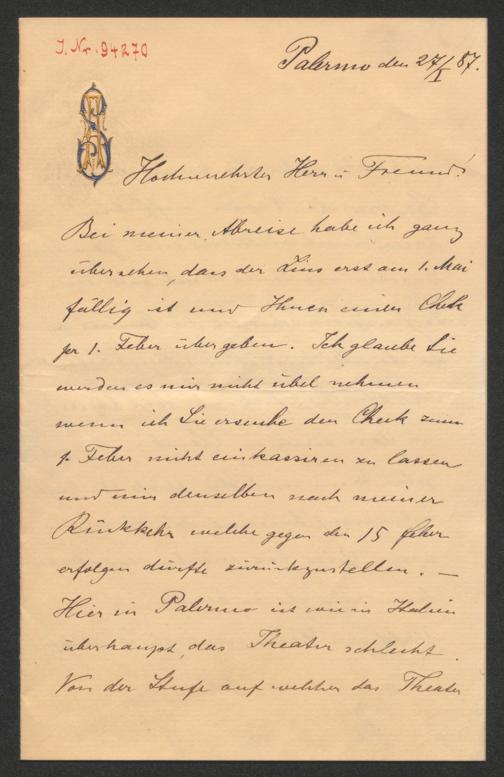 J. Nr. 94270
Palermo den 27/I 87.
Hochverehrter Herr u Freund!
Bei meiner Abreise habe ich ganz
übersehen, dass der Zins erst am 1. Mai
fällig ist und Ihnen einen Check
per 1. Feber übergeben. Ich glaube Sie
werden es mir nicht übel nehmen
wenn ich Sie ersuche den Check zum
1. Feber nicht einkassiren zu lassen
und mir denselben nach meiner
Rückkehr welche gegen den 15 feber
erfolgen dürfte zurückzustellen. —
Hier in Palermo ist wie in Italien
überhaupt das Theater schlecht.
Von der Stufe auf welcher das Theater